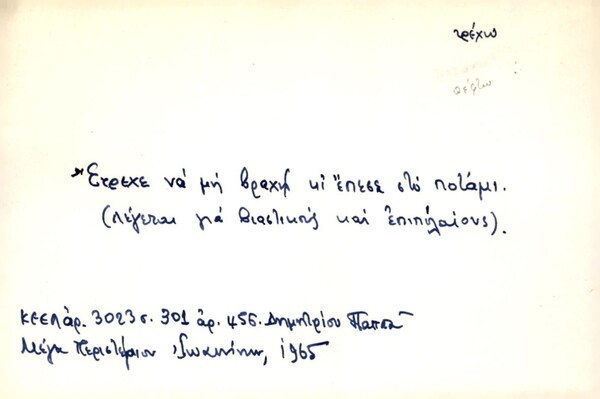 τρέχω
πέφτω
Ἔτρεχε νά μή βραχῇ κι ἔπεσε στό ποτάμι.
(λέγεται γιά βιαστικούς καί ἐπιπόλαιους).
ΚΕΕΛ ἀρ. 3023 σ. 301 ἀρ. 456. Δημητρίου Παππᾶ
Μέγα Περιστέριον Ἰωαννίνων, 1965